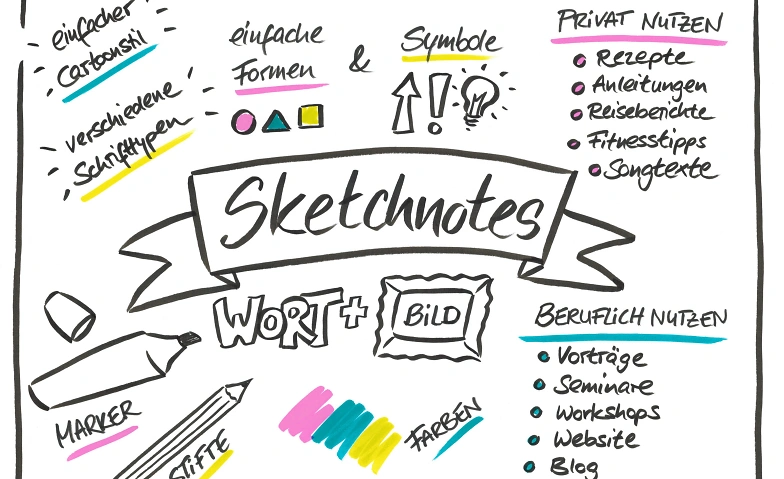 einfacher
Cartoonstil
verschiedene
Schrifttypen
einfache
Formen
&
Symbole
!
PRIVAT NUTZEN
Rezepte
Anleitungen
Reiseberichte
Fitnesstipps
Songtexte
Sketchnotes
WORT + BILD
MARKER
STIFTE
FARBEN
BERUFLICH NUTZEN
Vorträge
Seminare
Workshops
Website
Blog